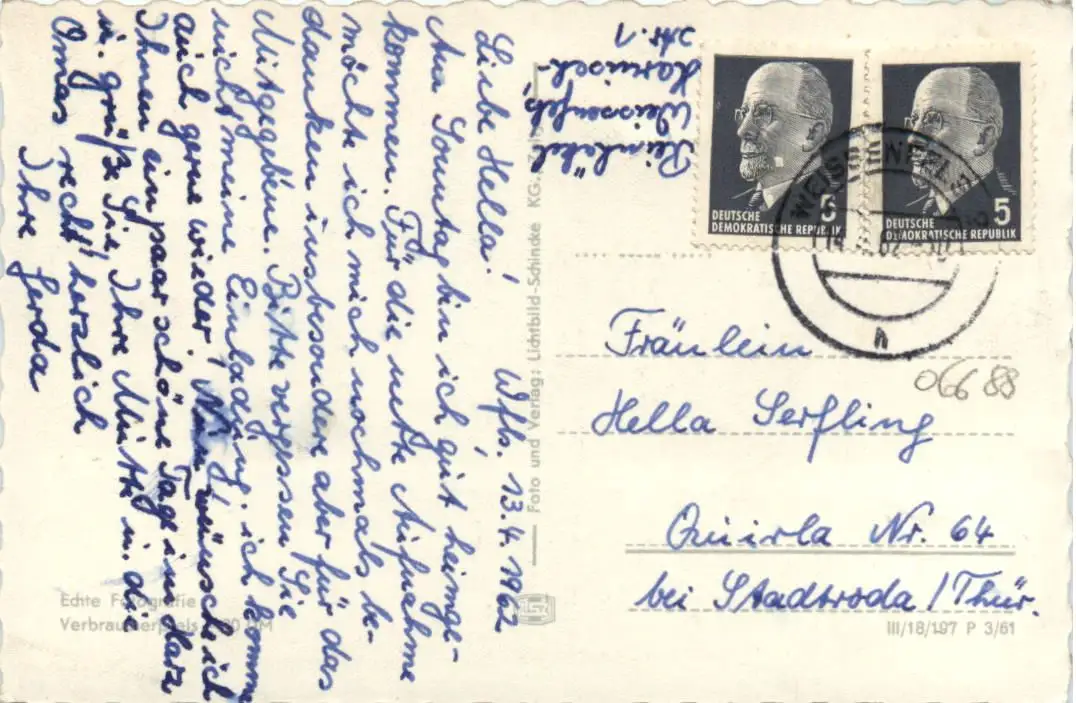 Wfls, 13.4.1962
Liebe Hella!
Am Sonntag bin ich gut heimge-
kommen. Für die nette Aufnahme
möchte ich mich nochmals be-
danken insbesondere aber für das
Mitgegebene. Bitte vergessen Sie
nicht meine Einladung, ich komme
auch gerne wieder! Nun wünsche ich
Ihnen ein paar schöne Tage im Harz
u. grüße Sie, Ihre Mutti u. die
Omas recht herzlich
Ihre Gerda
Weissenfels
Str. 1
Foto und Verlag: Lichtbild-Schincke KG.
DEUTSCHE
DEMOKRATISCHE REPUBLIK
5
DEUTSCHE
DEMOKRATISCHE REPUBLIK
5
WEISSENFELS
h
Fräulein
Hella Serfling
Quirla Nr. 64
bei Stadtroda/Thür.
066 88
Echte Fotografie
Verbraucherpreis
III/18/197 P 3/61